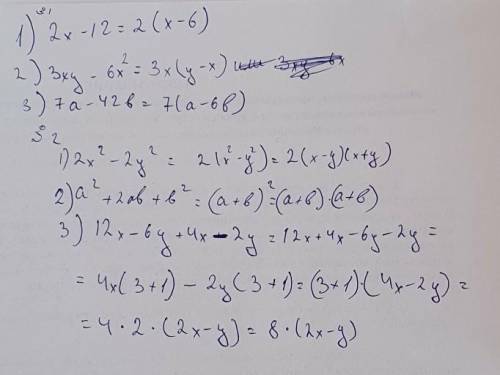 §1
1) 2x - 12 = 2(x-6)
2) 3xy - 6x² = 3x(y-x) или 3xy 6x
3) 7a - 42b = 7(a-6b)
§2
1) 2x² - 2y² = 2(x²-y²) = 2(x-y)(x+y)
2) a² + 2ab + b² = (a+b)² = (a+b)·(a+b)
3) 12x - 6y + 4x - 2y = 12x + 4x - 6y - 2y =
= 4x(3+1) - 2y(3+1) = (3+1)·(4x-2y) =
= 4·2·(2x-y) = 8·(2x-y)